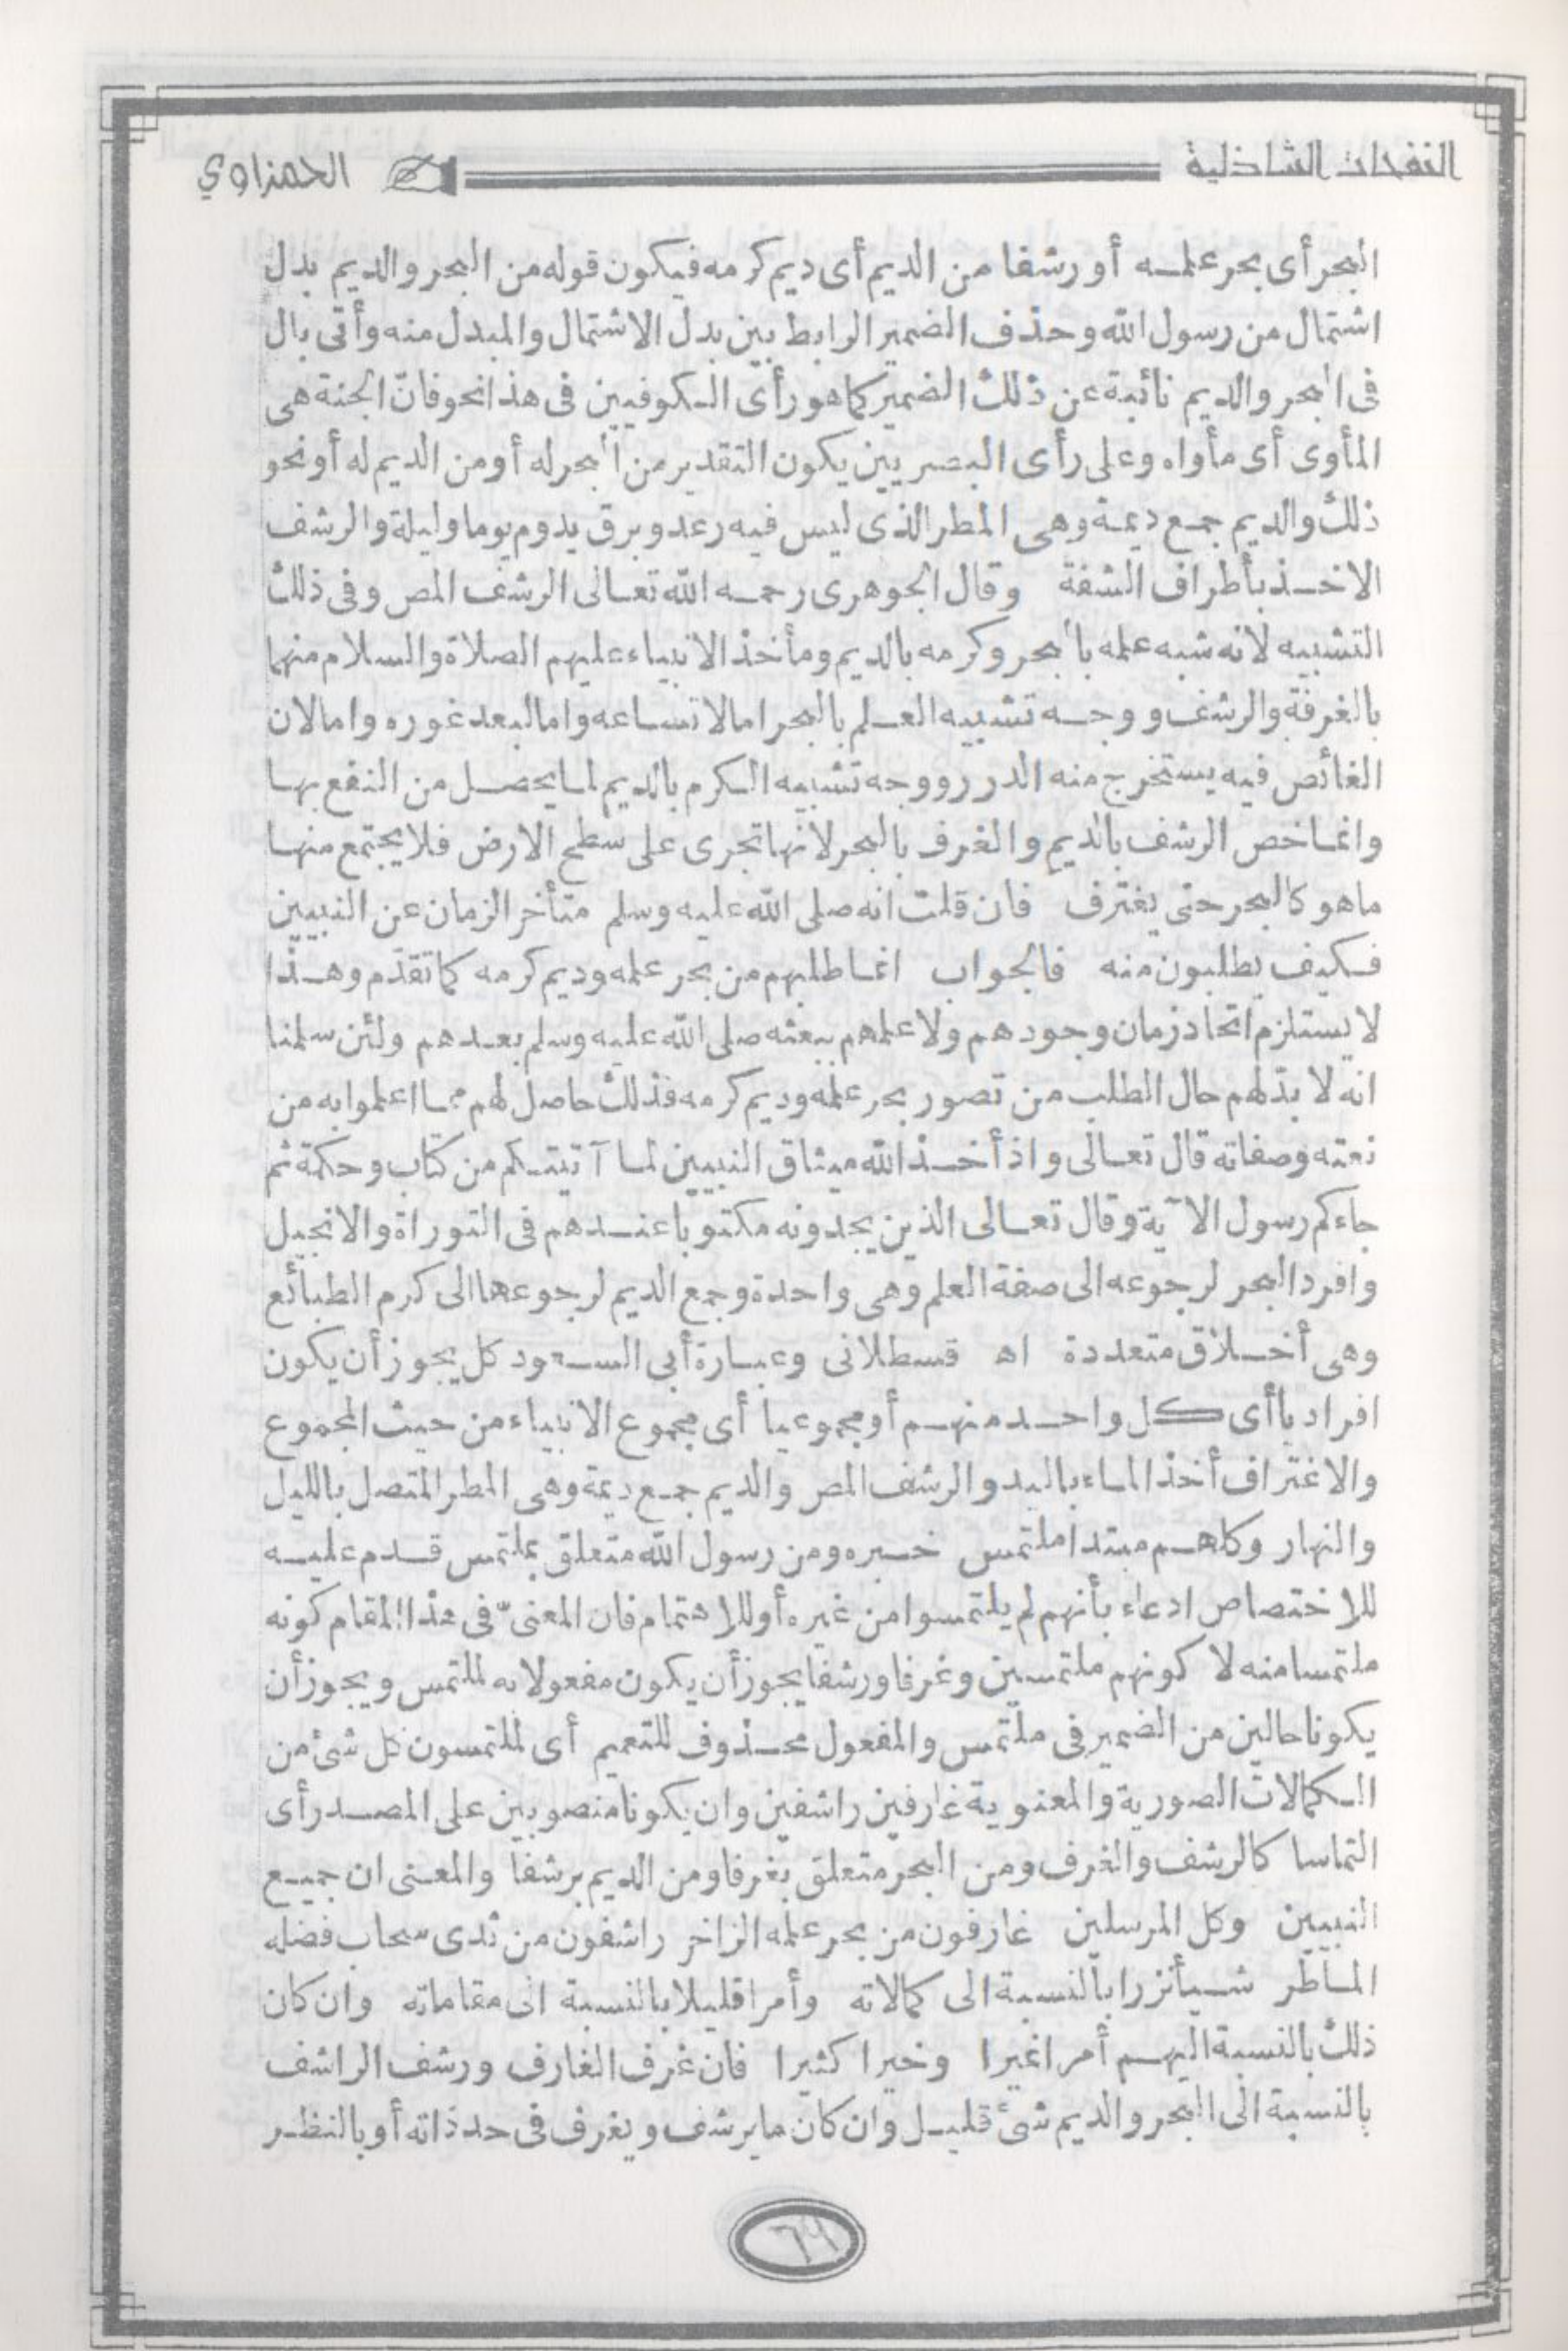 النفحات الشاذلية الحمزاوي
البحر أى بحر علمه أو رشفا من الديم أى ديم كرمه فيكون قوله من البحر والديم بدل
اشتمال من رسول الله وحذف الضمير الرابط بين بدل الاشتمال والمبدل منه وأتى بال
فى البحر والديم نائبة عن ذلك الضمير كما هو رأى الكوفيين فى هذا نحو فان الجنة هى
المأوى أى مأواه وعلى رأى البصريين يكون التقدير من البحر له أو من الديم له أو نحو
ذلك والديم جمع ديمة وهى المطر الذى ليس فيه رعد وبرق يدوم يوما وليلة والرشف
الاخذ بأطراف الشفة وقال الجوهرى رحمه الله تعالى الرشف المص وفى ذلك
التشبيه لانه شبه علمه بالبحر وكرمه بالديم ومأخذ الانبياء عليهم الصلاة والسلام منهما
بالغرفة والرشف ووجه تشبيه العلم بالبحر اما لاتساعه واما لبعد غوره واما لان
الغائص فيه يستخرج منه الدرر ووجه تشبيه الكرم بالديم لما يحصل من النفع بها
وانما خص الرشف بالديم والغرف بالبحر لانها تجرى على سطح الارض فلا يجتمع منها
ما هو كالبحر حتى يغترف فان قلت انه صلى الله عليه وسلم متأخر الزمان عن النبيين
فكيف يطلبون منه فالجواب انما طلبهم من بحر علمه وديم كرمه كما تقدّم وهذا
لا يستلزم اتحاد زمان وجودهم ولا علمهم ببعثه صلى الله عليه وسلم بعدهم ولئن سلمنا
انه لا بدّ لهم حال الطلب من تصور بحر علمه وديم كرمه فذلك حاصل لهم مما اعلموا به من
نعته وصفاته قال تعالى واذ أخذ الله ميثاق النبيين لما آتيتكم من كتاب وحكمة ثم
جاءكم رسول الآية وقال تعالى الذين يجدونه مكتوبا عندهم فى التوراة والانجيل
وافرد البحر لرجوعه الى صفة العلم وهى واحدة وجمع الديم لرجوعها الى كرم الطبائع
وهى أخلاق متعددة اه قسطلانى وعبارة أبى السعود كل يجوز أن يكون
افراديا أى كل واحد منهم أو مجموعيا أى مجموع الانبياء من حيث المجموع
والاغتراف أخذ الماء باليد والرشف المص والديم جمع ديمة وهى المطر المتصل بالليل
والنهار وكلهم مبتدا ملتمس خبره ومن رسول الله متعلق بملتمس قدم عليه
للاختصاص ادعاء بأنهم لم يلتمسوا من غيره أو للاهتمام فان المعنىّ فى هذا المقام كونه
ملتمسا منه لا كونهم ملتمسين وغرفا ورشفا يجوز أن يكون مفعولا به لملتمس ويجوز أن
يكونا حالين من الضمير فى ملتمس والمفعول محذوف للتعميم أى لملتمسون كل شئ من
الكمالات الصورية والمعنوية غارفين راشفين وان يكونا منصوبين على المصدر أى
التماسا كالرشف والغرف ومن البحر متعلق بغرفا ومن الديم برشفا والمعنى ان جميع
النبيين وكل المرسلين غارفون من بحر علمه الزاخر راشفون من ثدى سحاب فضله
الماطر شيأ نزرا بالنسبة الى كمالاته وأمرا قليلا بالنسبة الى مقاماته وان كان
ذلك بالنسبة اليهم أمرا غيرا وخيرا كثيرا فان غرف الغارف ورشف الراشف
بالنسبة الى البحر والديم شئ قليل وان كان ما يرشف ويغرف فى حد ذاته أو بالنظر